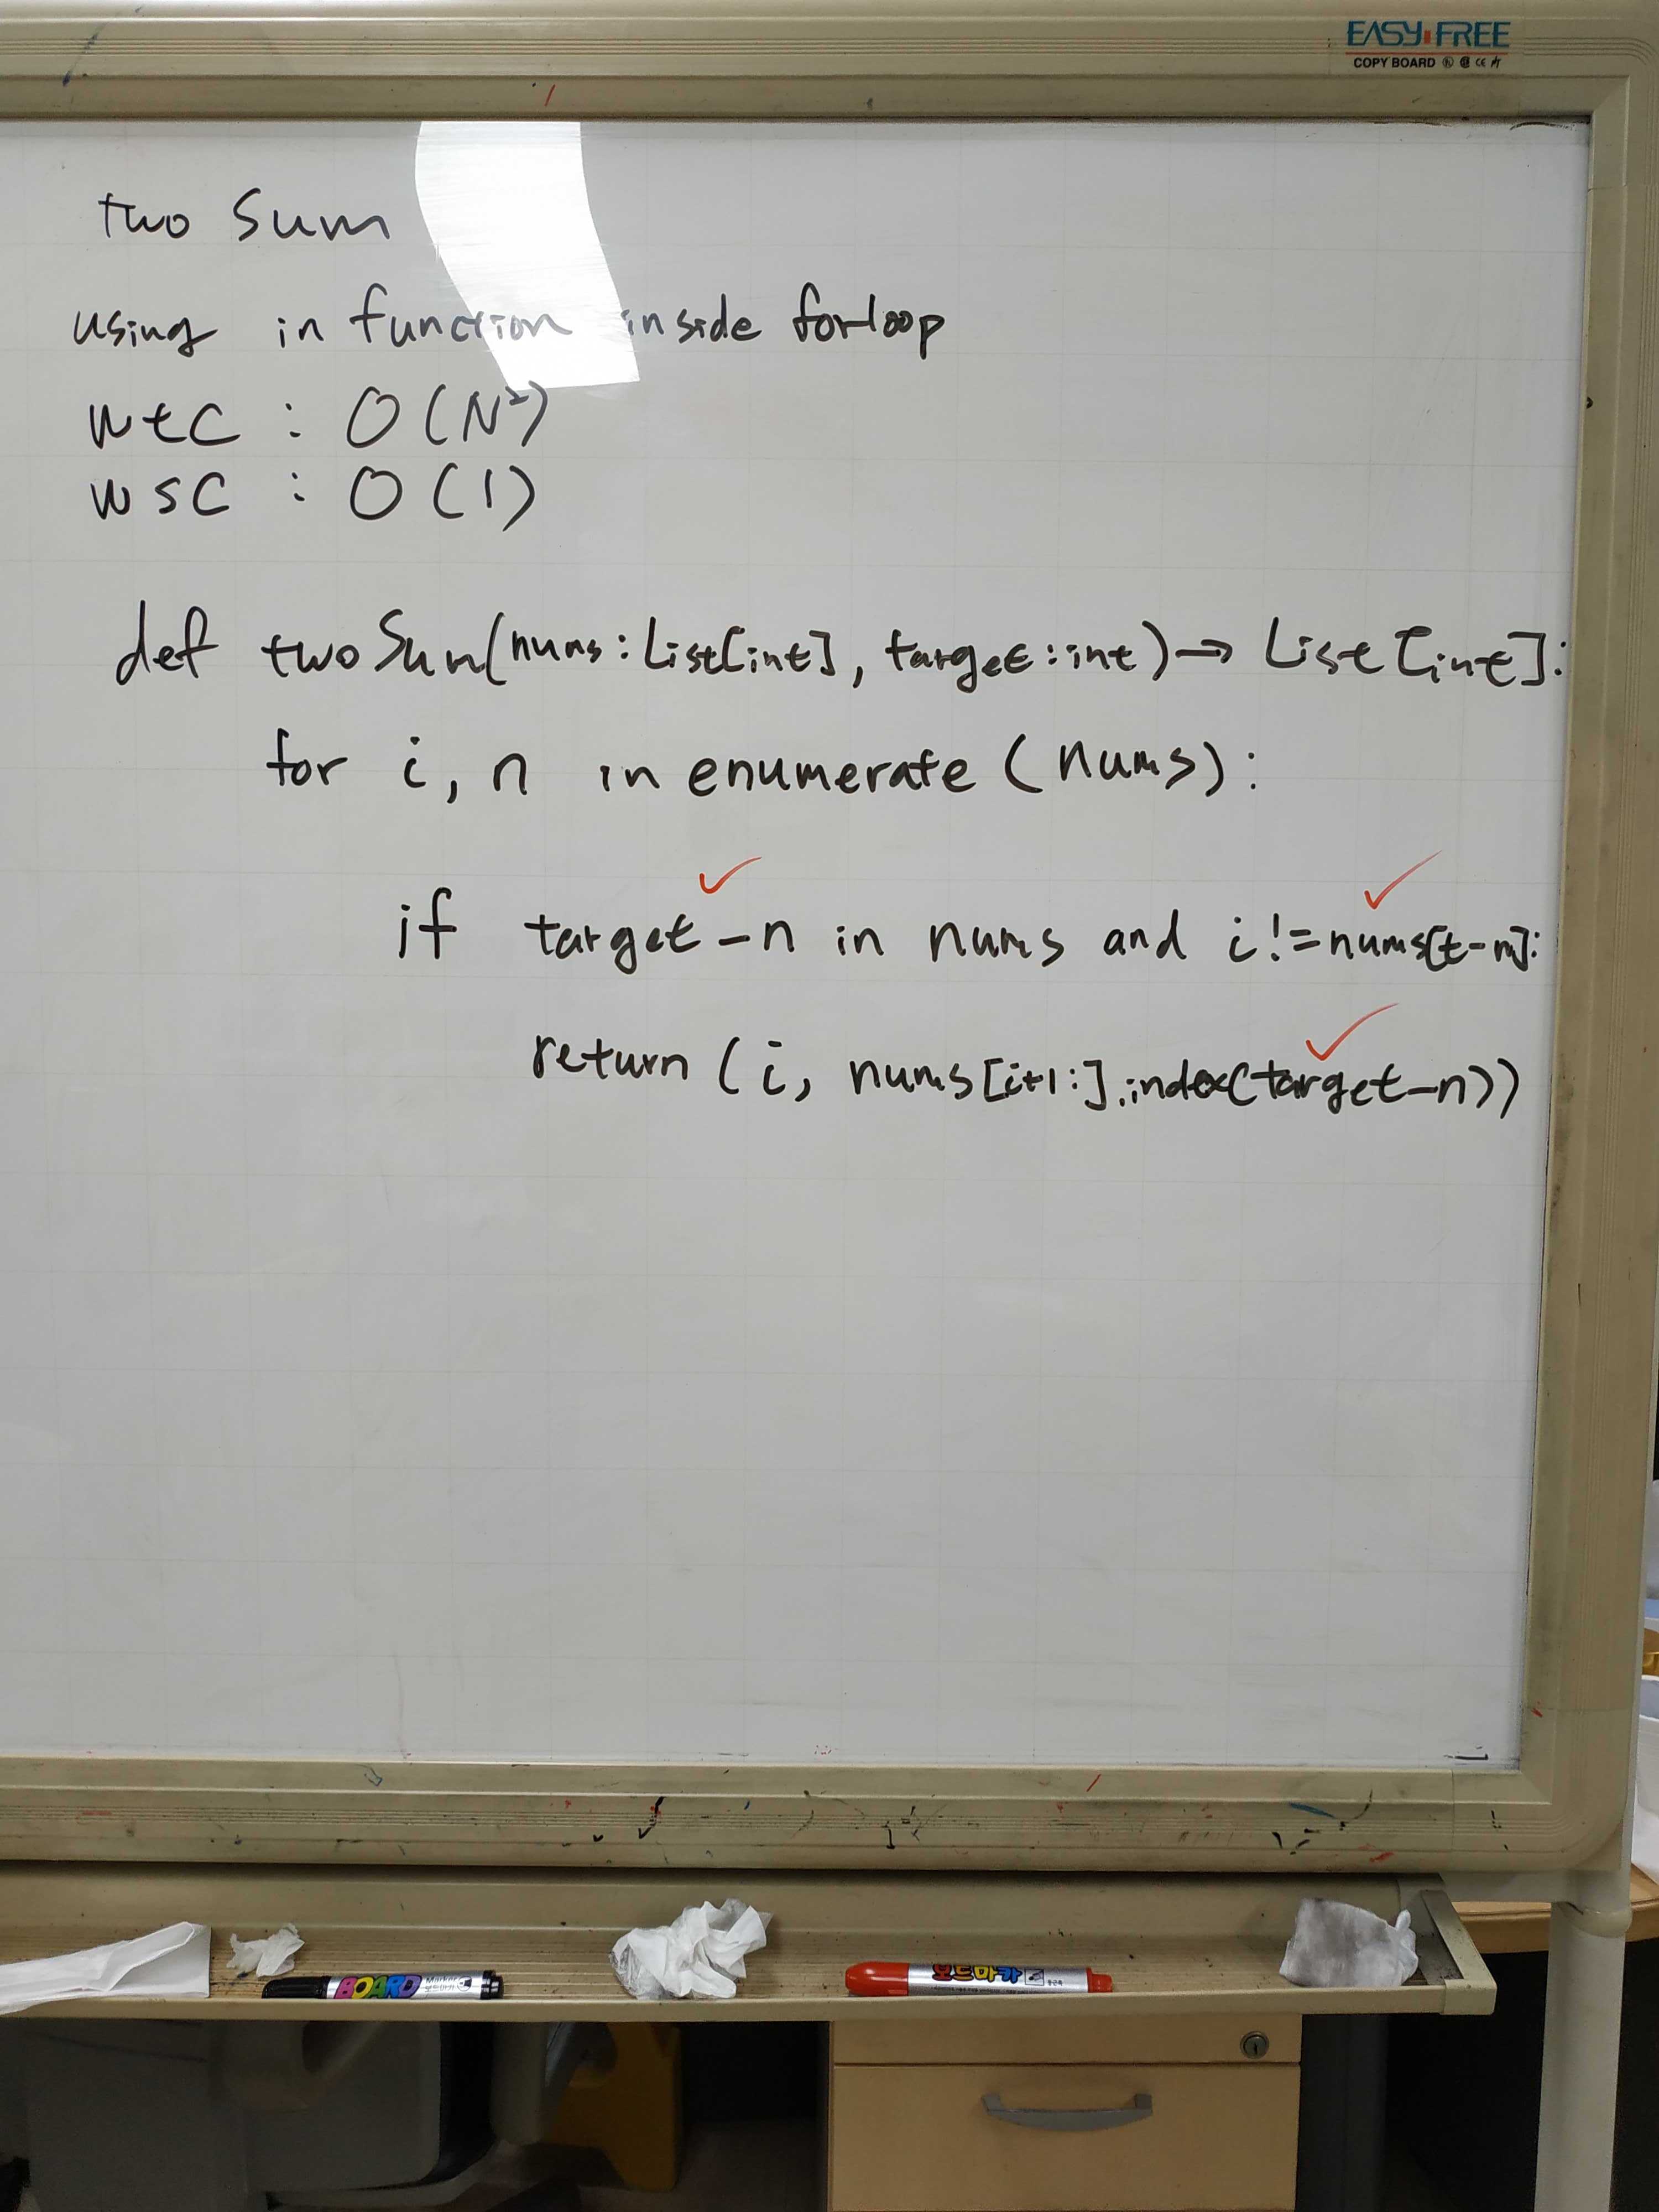 EASY FREE
COPY BOARD
two Sum
using in function inside forloop
wtc : O(N²)
wsc : O(1)
def twoSum(nums:List[int], target:int)→ List[int]:
for i, n in enumerate (nums):
if target-n in nums and i!=nums[t-n]:
return (i, nums[i+1:].index(target-n))
BOARD Marker
보드마카
보드마카